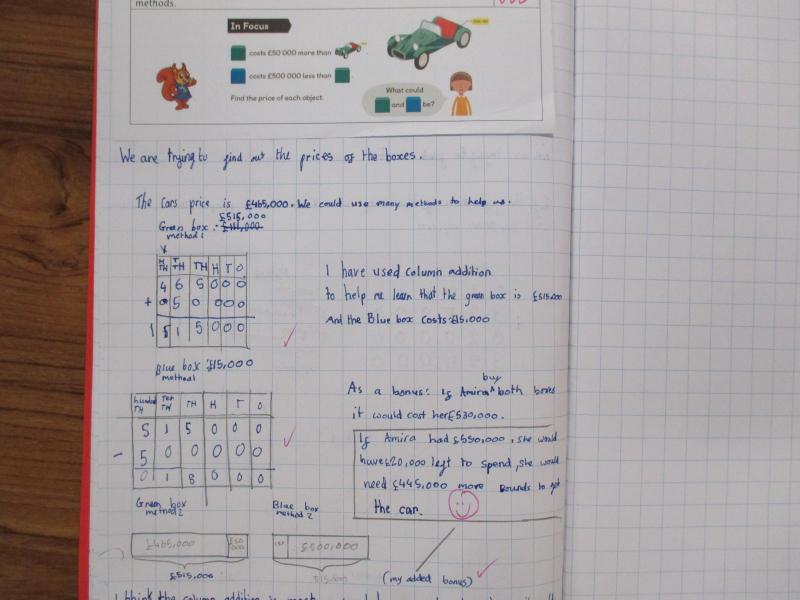 methods.
In Focus
costs £50 000 more than
costs £500 000 less than
Find the price of each object.
What could
and be?
We are trying to find out the prices of the boxes.
The Cars price is £465,000. We could use many methods to help us.
£515,000
Green box :
method 1
H TH T TH TH H T O
4 6 5 0 0 0
+ 0 5 0 0 0 0
1 5 1 5 0 0 0
I have used column addition
to help me learn that the green box is £515,000
And the Blue box costs £15,000
Blue box : £15,000
method 1
hundred TH Ten TH TH H T O
5 1 5 0 0 0
- 5 0 0 0 0 0
0 1 5 0 0 0
buy
As a bonus: If Amira ^ both boxes
it would cost her £530,000.
If Amira had £550,000, she would
have £20,000 left to spend, she would
need £445,000 more pounds to get
the car.
Green box
method 2
Blue box
method 2
£465,000 £50 000
£515,000
£500,000
£15,000
(my added bonus)
I think the column addition is most